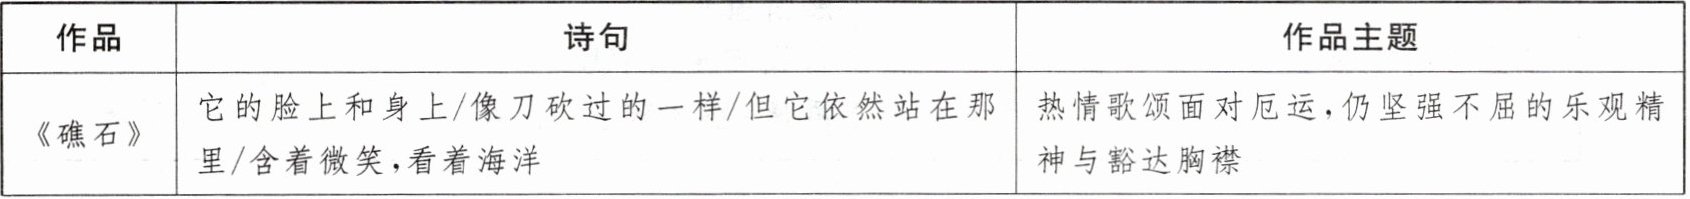 作品 诗句 作品主题
《礁石》 它的脸上和身上/像刀砍过的一样/但它依然站在那 热情歌颂面对厄运,仍坚强不屈的乐观精
里/含着微笑,看着海洋 神与豁达胸襟